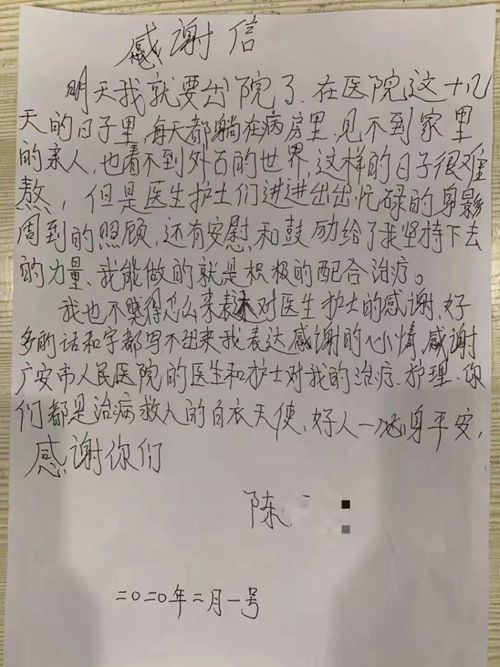 感谢信
明天我就要出院了.在医院这十几
天的日子里,每天都躺在病房里.见不到家里
的亲人,也看不到外面的世界,这样的日子很难
熬,但是医生护士们进进出出忙碌的身影
周到的照顾,还有安慰和鼓励给了我坚持下去
的力量、我能做的就是积极的配合治疗。
我也不晓得怎么来表达对医生护士的感谢,好
多的话和字都写不出来我表达感谢的心情,感谢
广安市人民医院的医生和护士对我的治疗、护理、你
们都是治病救人的白衣天使、好人一身平安,
感谢你们
陈
二〇二〇年二月一号